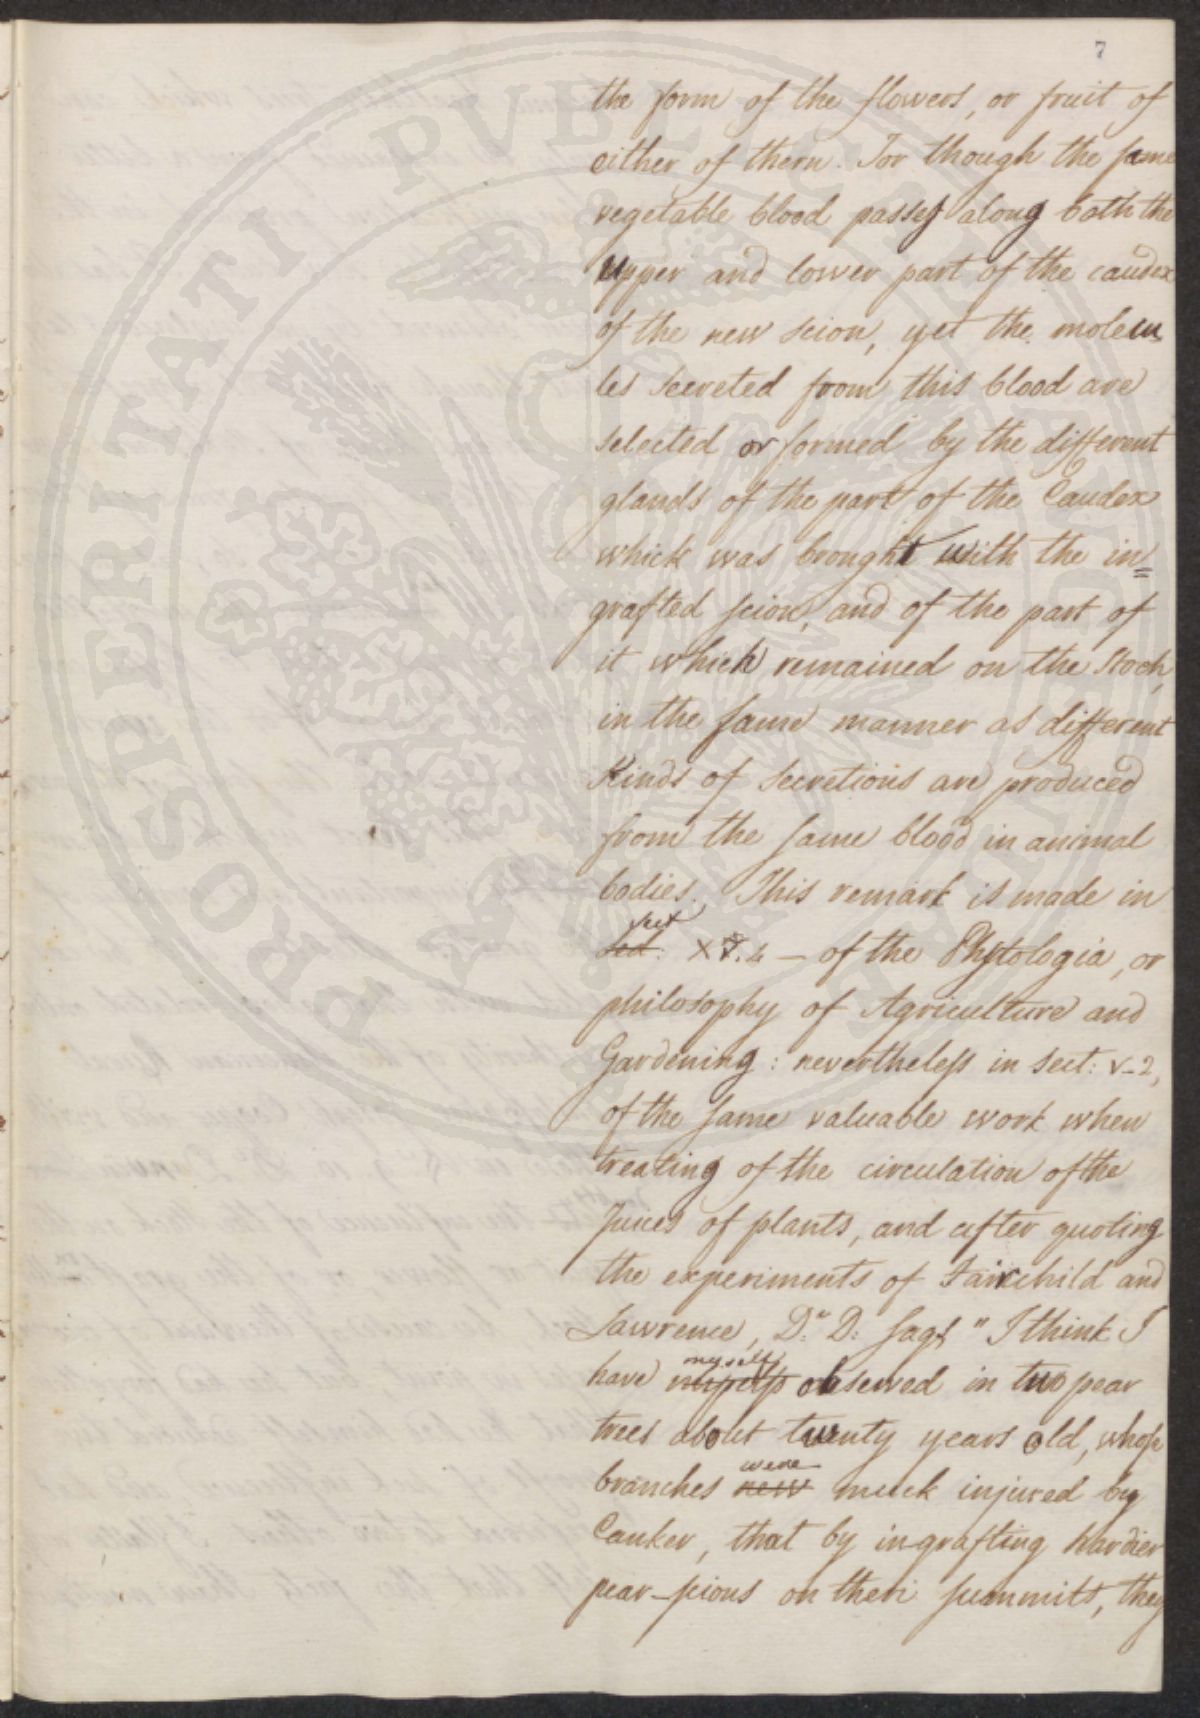 7
the form of the flowers, or fruit of
either of them. For though the same
vegetable blood passes along both the
upper and lower part of the caudex
of the new scion, yet the molecu
les secreted from this blood are
selected or formed by the different
glands of the part of the Caudex
which was brought with the in=
grafted scion, and of the part of
it which remained on the Stock,
in the same manner as different
Kinds of secretions are produced
from the same blood in animal
bodies. This remark is made in
sect
X 4 — of the Phytologia, or
philosophy of Agriculture and
Gardening: nevertheless in sect: v-2,
of the same valuable work when
treating of the circulation of the
Juices of plants, and after quoting
the experiments of Fairchild and
Lawrence, Dr. D: says "I think I
myself
have observed in two pear
trees about twenty years old, whose
were
branches new much injured by
Canker, that by ingrafting hardier
pear-scions on their summits, they
PROSPERITATI PVBLICAE